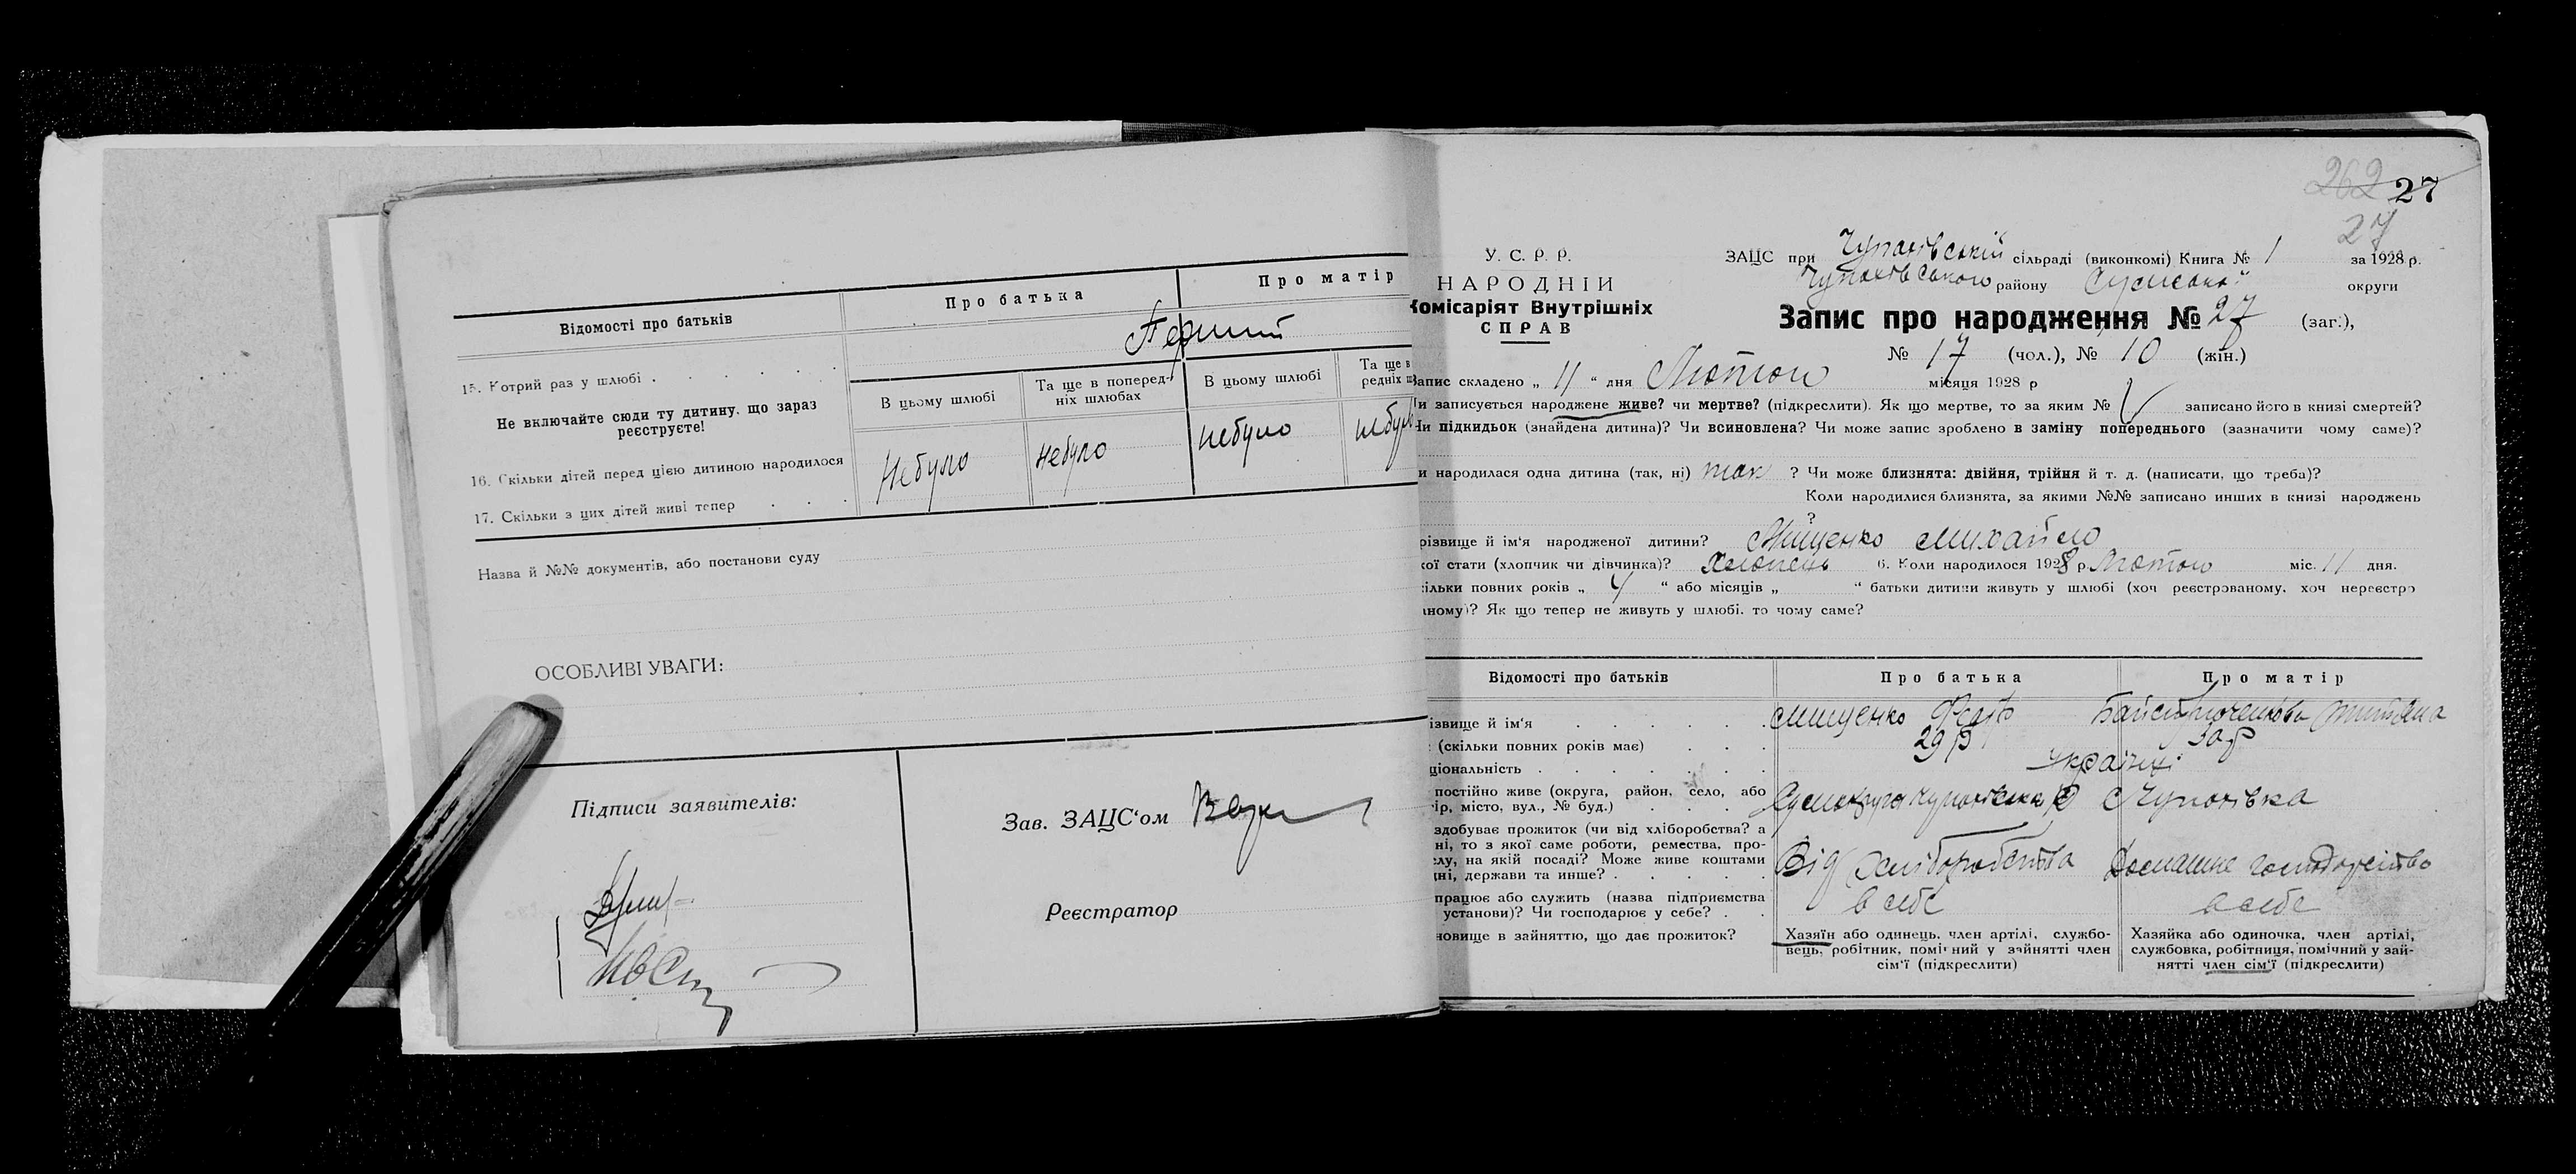 Відомості про батьків
Про батька
Про матір
15. Котрий раз у шлюбі
Перший
Не включайте сюди ту дитину, що зараз реєструєте!
В цьому шлюбі
Та ще в поперед-
ніх шлюбах
В цьому шлюбі
Та ще в
редніх ш
16. Скільки дітей перед цією дитиною народилося
Небуло
небуло
небуло
небуло
17. Скільки з цих дітей живі тепер
Назва й №№ документів, або постанови суду
ОСОБЛИВІ УВАГИ:
Підписи заявителів:
Зав. ЗАЦС'ом
Реєстратор
262 27
27
У. С. Р. Р.
НАРОДНІЙ
Комісаріят Внутрішніх
СПРАВ
ЗАЦС при Чупахівській сільраді (виконкомі) Книга № 1 за 1928 р.
Чупахівського району Сумської округи
Запис про народження № 27 (заг.),
№ 17 (чол.), № 10 (жін.)
Запис складено „ 11 “ дня Лютого місяця 1928 р
Чи записується народжене живе? чи мертве? (підкреслити). Як що мертве, то за яким № записано його в книзі смертей?
Чи підкидьок (знайдена дитина)? Чи всиновлена? Чи може запис зроблено в заміну попереднього (зазначити чому саме)?
и народилася одна дитина (так, ні) так ? Чи може близнята: двійня, трійня й т. д. (написати, що треба)?
Коли народилися близнята, за якими №№ записано инших в книзі народжень
?
різвище й ім'я народженої дитини? Мищенко Михайло
кої стати (хлопчик чи дівчинка)? Хлопець 6. Коли народилося 1928 р. Лютого міс. 11 дня.
кільки повних років „ 4 “ або місяців „ “ батьки дитини живуть у шлюбі (хоч реєстрованому, хоч нереєстро
аному)? Як що тепер не живуть у шлюбі, то чому саме?
Відомості про батьків
Про батька
Про матір
ізвище й ім'я
Мищенко
(скільки повних років має)
29 р
30 р
ціональність
Українці
постійно живе (округа, район, село, або
ір, місто, вул., № буд.)
с Чупахівка
здобуває прожиток (чи від хліборобства? а
ні, то з якої саме роботи, ремества, про-
лу, на якій посаді? Може живе коштами
ні, держави та инше?
Від хліборобства
Домашне господарство
працює або служить (назва підприємства
установи)? Чи господарює у себе?
в себе
в себе
новище в зайняттю, що дає прожиток?
Хазяїн або одинець, член артілі, службо-
вець, робітник, помічний у зайнятті член
сім'ї (підкреслити)
Хазяйка або одиночка, член артілі,
службовка, робітниця, помічний у зай-
нятті член сім'ї (підкреслити)